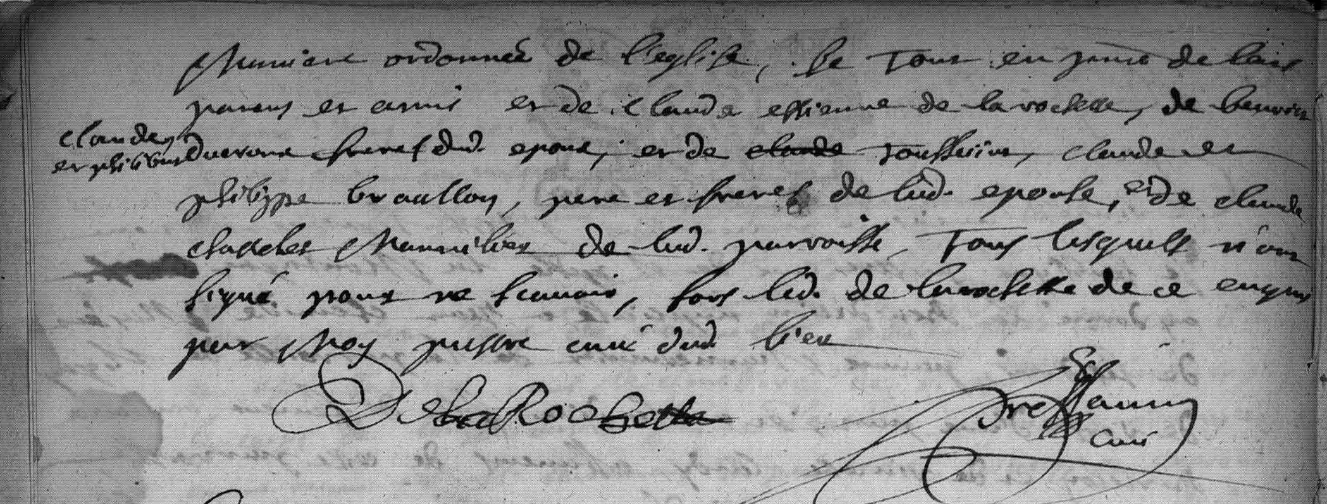 maniere ordonnée de l'eglise, le tout en pnce de leurs
parens et amis et de claude estienne de la rochette, de benoist
claude
et philippe
duverne freres dud. epoux, et de claude toussaint, claude et
philippe bruallon, pere et freres de lad. epouse, et de claude
manillier de lad. parroisse, tous lesquels n'ont
signé pour ne scavoir, fors led. de larochette de ce enquis
par moy prestre curé dud. lieu
DelaRochette
curé